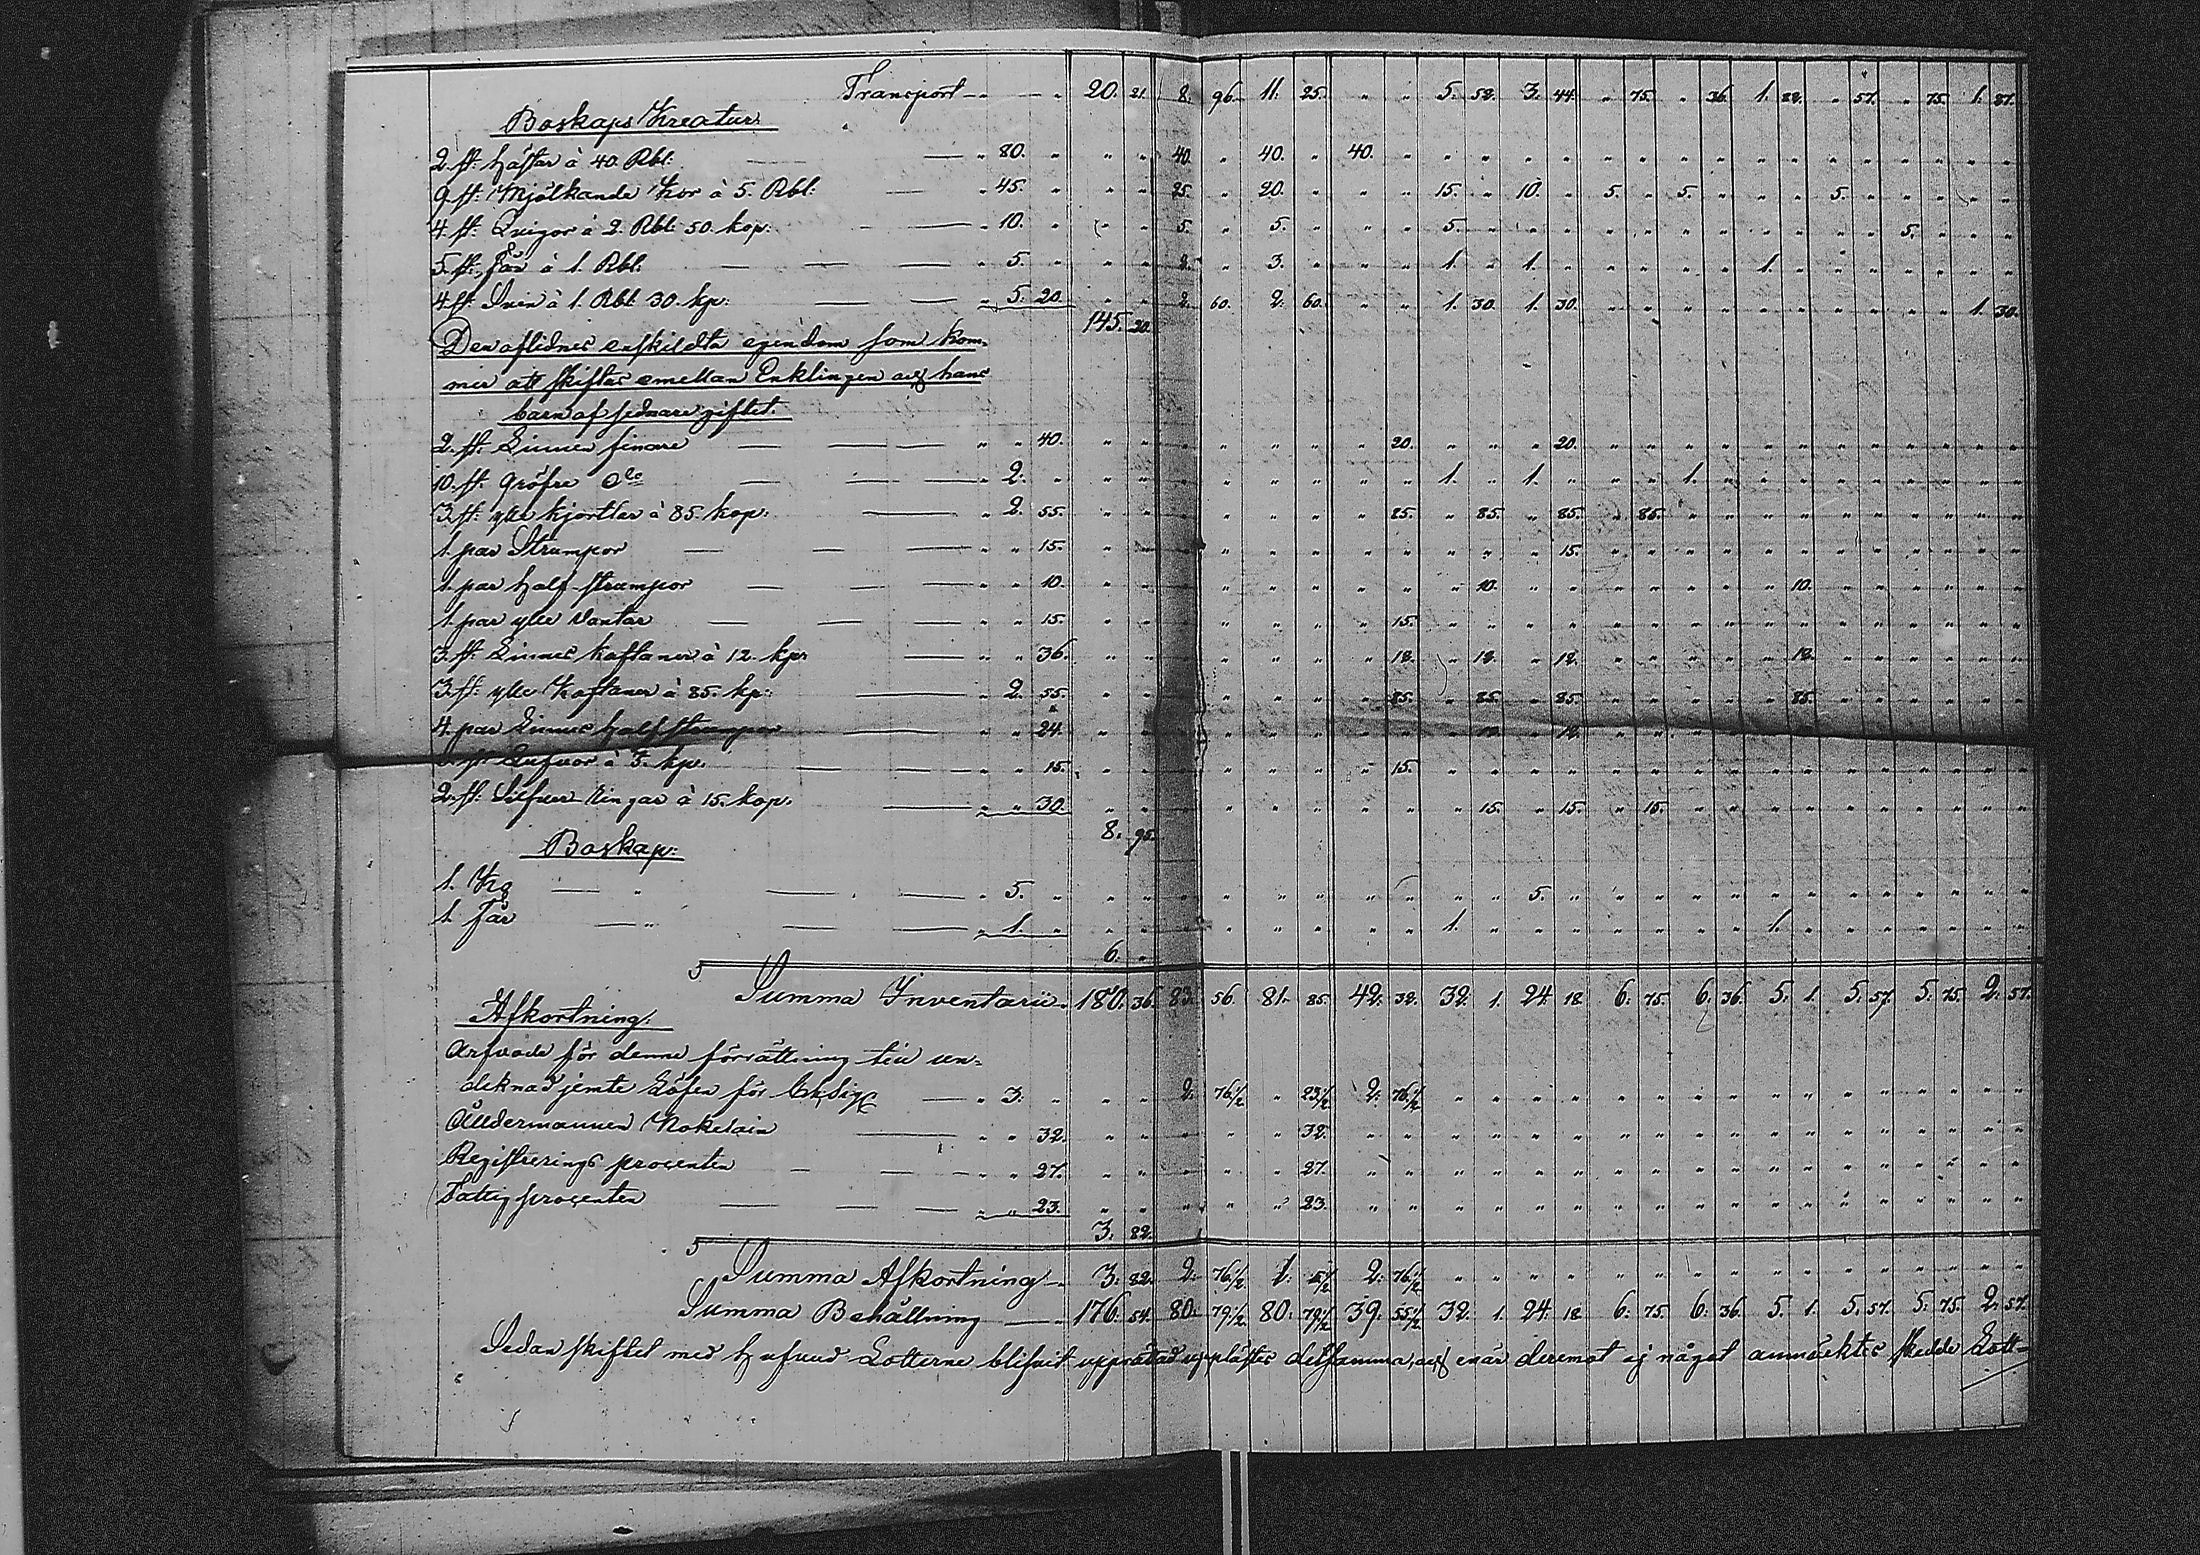 Transport 20. 21. 8. 96. 11. 25. " " 5. 58. 3. 44. " 75. " 36. 1. 28. " 57. " 75. 1. 27.
Boskaps Kreatur:
2 st: hästar à 40. Rbl: " 80. " " " 40. " 40. " 40. "
9 st: Mjölkande Kor à 5. Rbl: " 45. " " " 25. " 20. " " " 15. " 10. " 5. " 5. " " " 5.
4. st: Quigor à 2. Rbl: 50. kop: " 10. " " " 5. " 5. " " " 5. " " " " " " " " " " " 5.
5. st: får à 1. Rbl: " 5. " " " 2. " 3. " " " 1. " 1. " " " " " 1.
4. st: Svin à 1. Rbl: 30. kp: " 5. 20. " " 2. 60. 2. 60. " " 1. 30. 1. 30. " " " " " " " " " " 1. 30.
145. 20.
Den aflidnes enskildta egendom som kom-
mer att skiftas emellan Enklingen och hans
barn af sednare giftet.
2. st: Linnen finare " " 40. " " " " " " " 20. " " " 20.
10. st: gröfre do " 2. " " " " " " " " " 1. " 1. " " " 1.
3. st: ylle kjortlar à 85. kop: " 2. 55. " " " " " " " 85. " 85. " 85. " 85.
1. par Strumpor " " 15. " " " " " " " " " " " 15.
1. par half strumpor " " 10. " " " " " " " " " 10. " " " " " " " 10.
1. par ylle Vantar " " 15. " " " " " " " 15.
3. st: Linnes kaftaner à 12. kp: " " 36. " " " " " " " 12. " 12. " 12. " " " " " 12.
3. st: ylle Kaftaner à 85. kp: " 2. 55. " " " " " " " 85. " 85. " 85. " " " " " 85.
4. par Linnes half strumpor " " 24. " " " " " " " " " 12. " 12.
à 5. kp: " " 15. " " " " " " " 15.
2. st: Silfver Ringar à 15. kop: " " 30. " " " " " " " " " 15. " 15. " 15.
8. 95.
Boskap:
1. Ko " 5. " " " " " " " " " " " 5.
1. får " 1. " " " " " " " " " 1. " " " " " " " 1.
6. "
Summa Inventarii 180. 36. 83. 56. 81. 85. 42. 32. 32. 1. 24. 18. 6. 75. 6. 36. 5. 1. 5. 57. 5. 75. 2. 57.
Afkortning:
Arfvode för denna förrättning till un-
deknad jemte Lösen för " 3. " " " 2. 76 1/2 " 23 1/2 2. 76 1/2
Ålldermannen Kokelain " " 32. " " " " " 32.
Registrerings procenten " " 27. " " " " " 27.
Fattig procenten " " 23. " " " " " 23.
3. 82.
Summa Afkortning 3. 82. 2. 76 1/2 1. 5 1/2 2. 76 1/2
Summa Behållning 176. 54. 80. 79 1/2 80. 79 1/2 39. 55 1/2 32. 1. 24. 18. 6. 75. 6. 36. 5. 1. 5. 57. 5. 75. 2. 57.
Sedan skiftet med Hufvud Lotterne blifvit upprättad upplästes detsamma, och enär deremot ej något anmärktes skedde Lott-